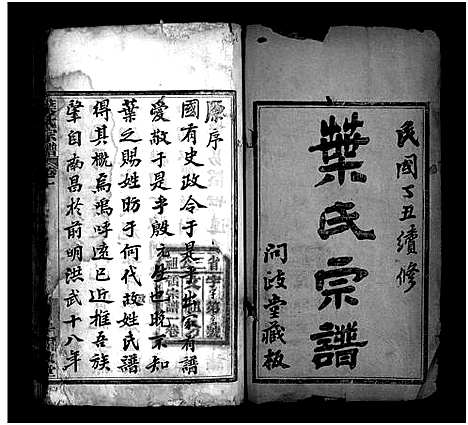 民國丁丑續修
葉氏宗譜
問政堂藏板
原序
國有史政令于是乎出家有譜
愛敬于是乎殷元生也晩未知
葉之賜姓昉于何代故姓氏譜
得其概烏嗚呼遠已近推吾族
肇自南昌於前明洪武十八年